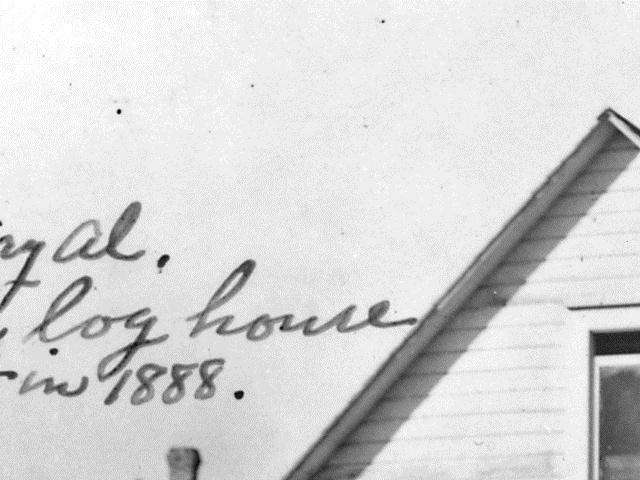 al.
log house
in 1888.